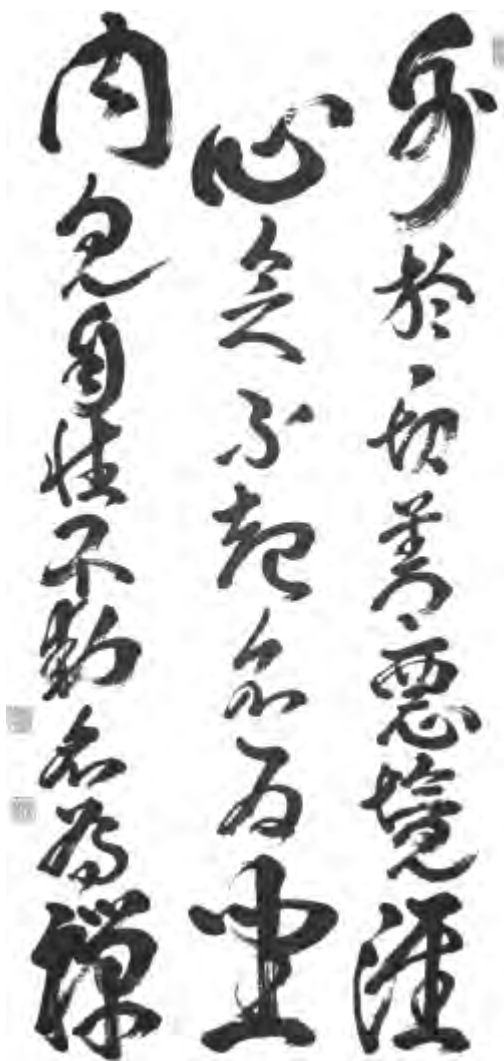 外於一切善惡境涯
心念不起名為坐
内見自性不動名為禅